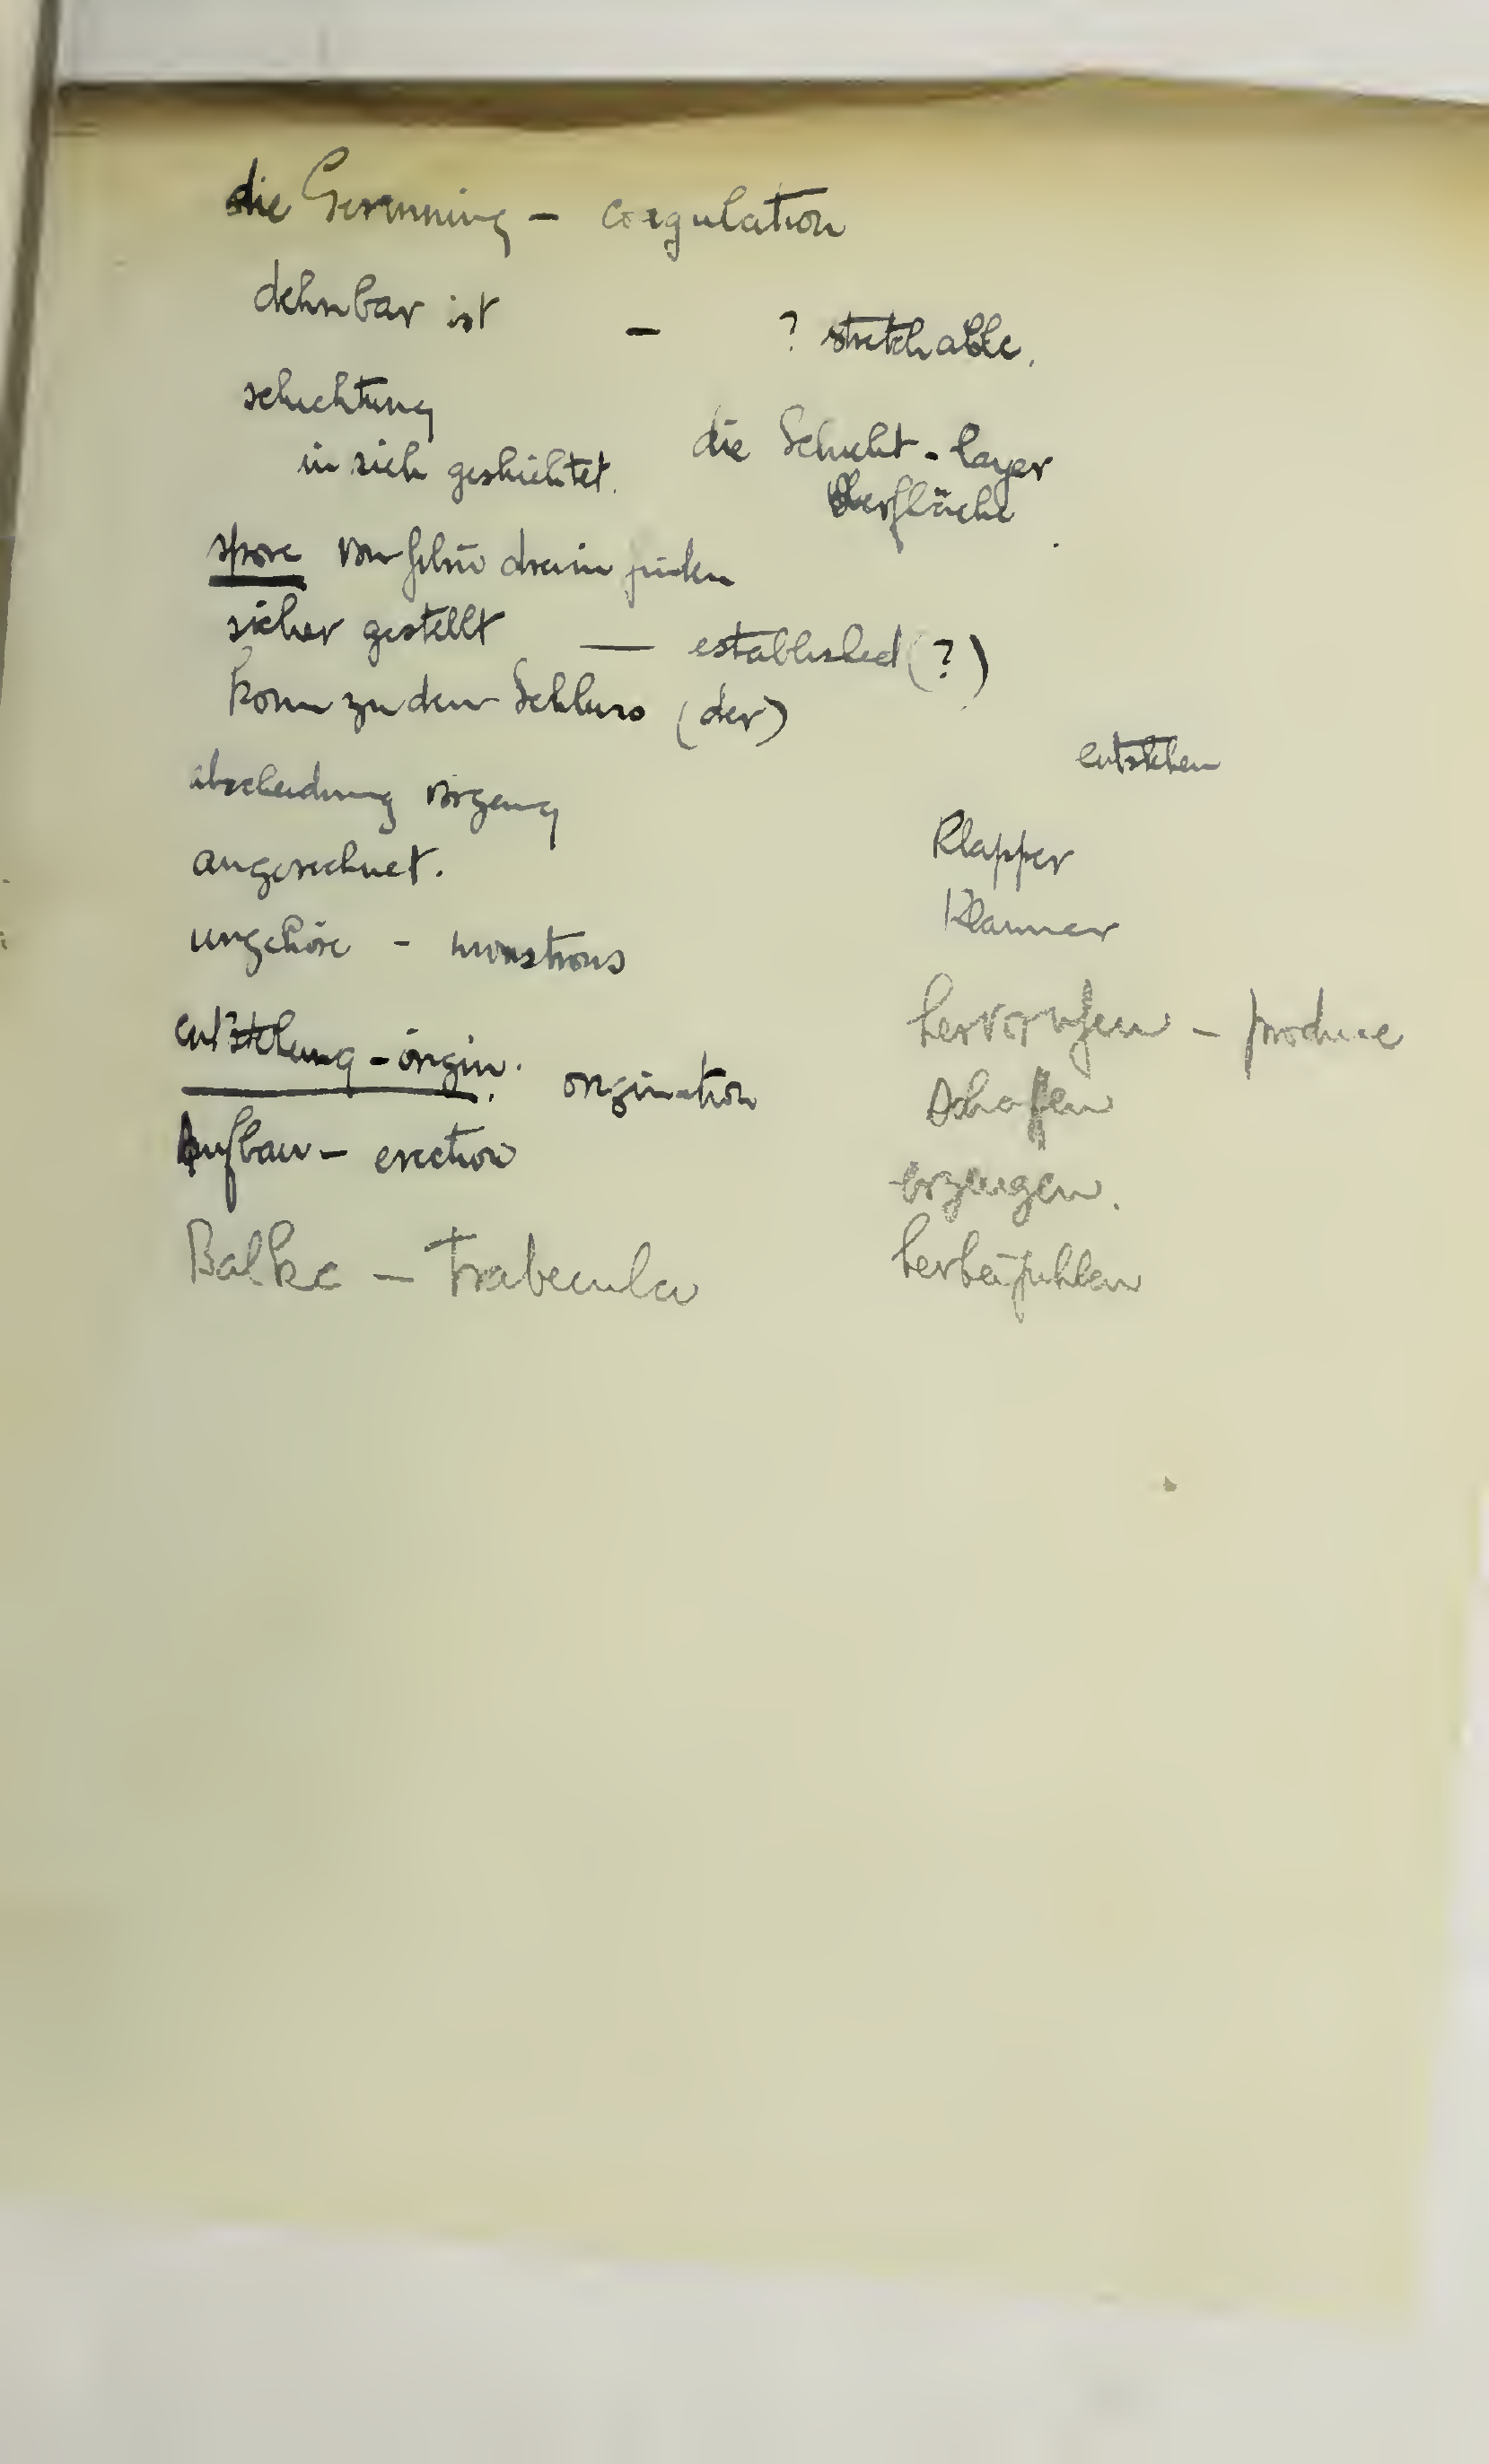 die Gerinnung - coagulation
dehnbar ist - ? stretchable.
schichtung
in sich geshichtet. die Schicht - layer
Oberfläche
von drain finden
sicher gestellt — established (?)
kom zu dem Schluss (der)
entstehen
abscheidung vorgang
angerechnet.
Klapper
Klammer
ungehöre - monstrous
hervorrufen - produce
entstehung - origin. origination
schaffen
Aufbau - erection
erzeugen.
Balke - Trabecula
herbeifuhlen